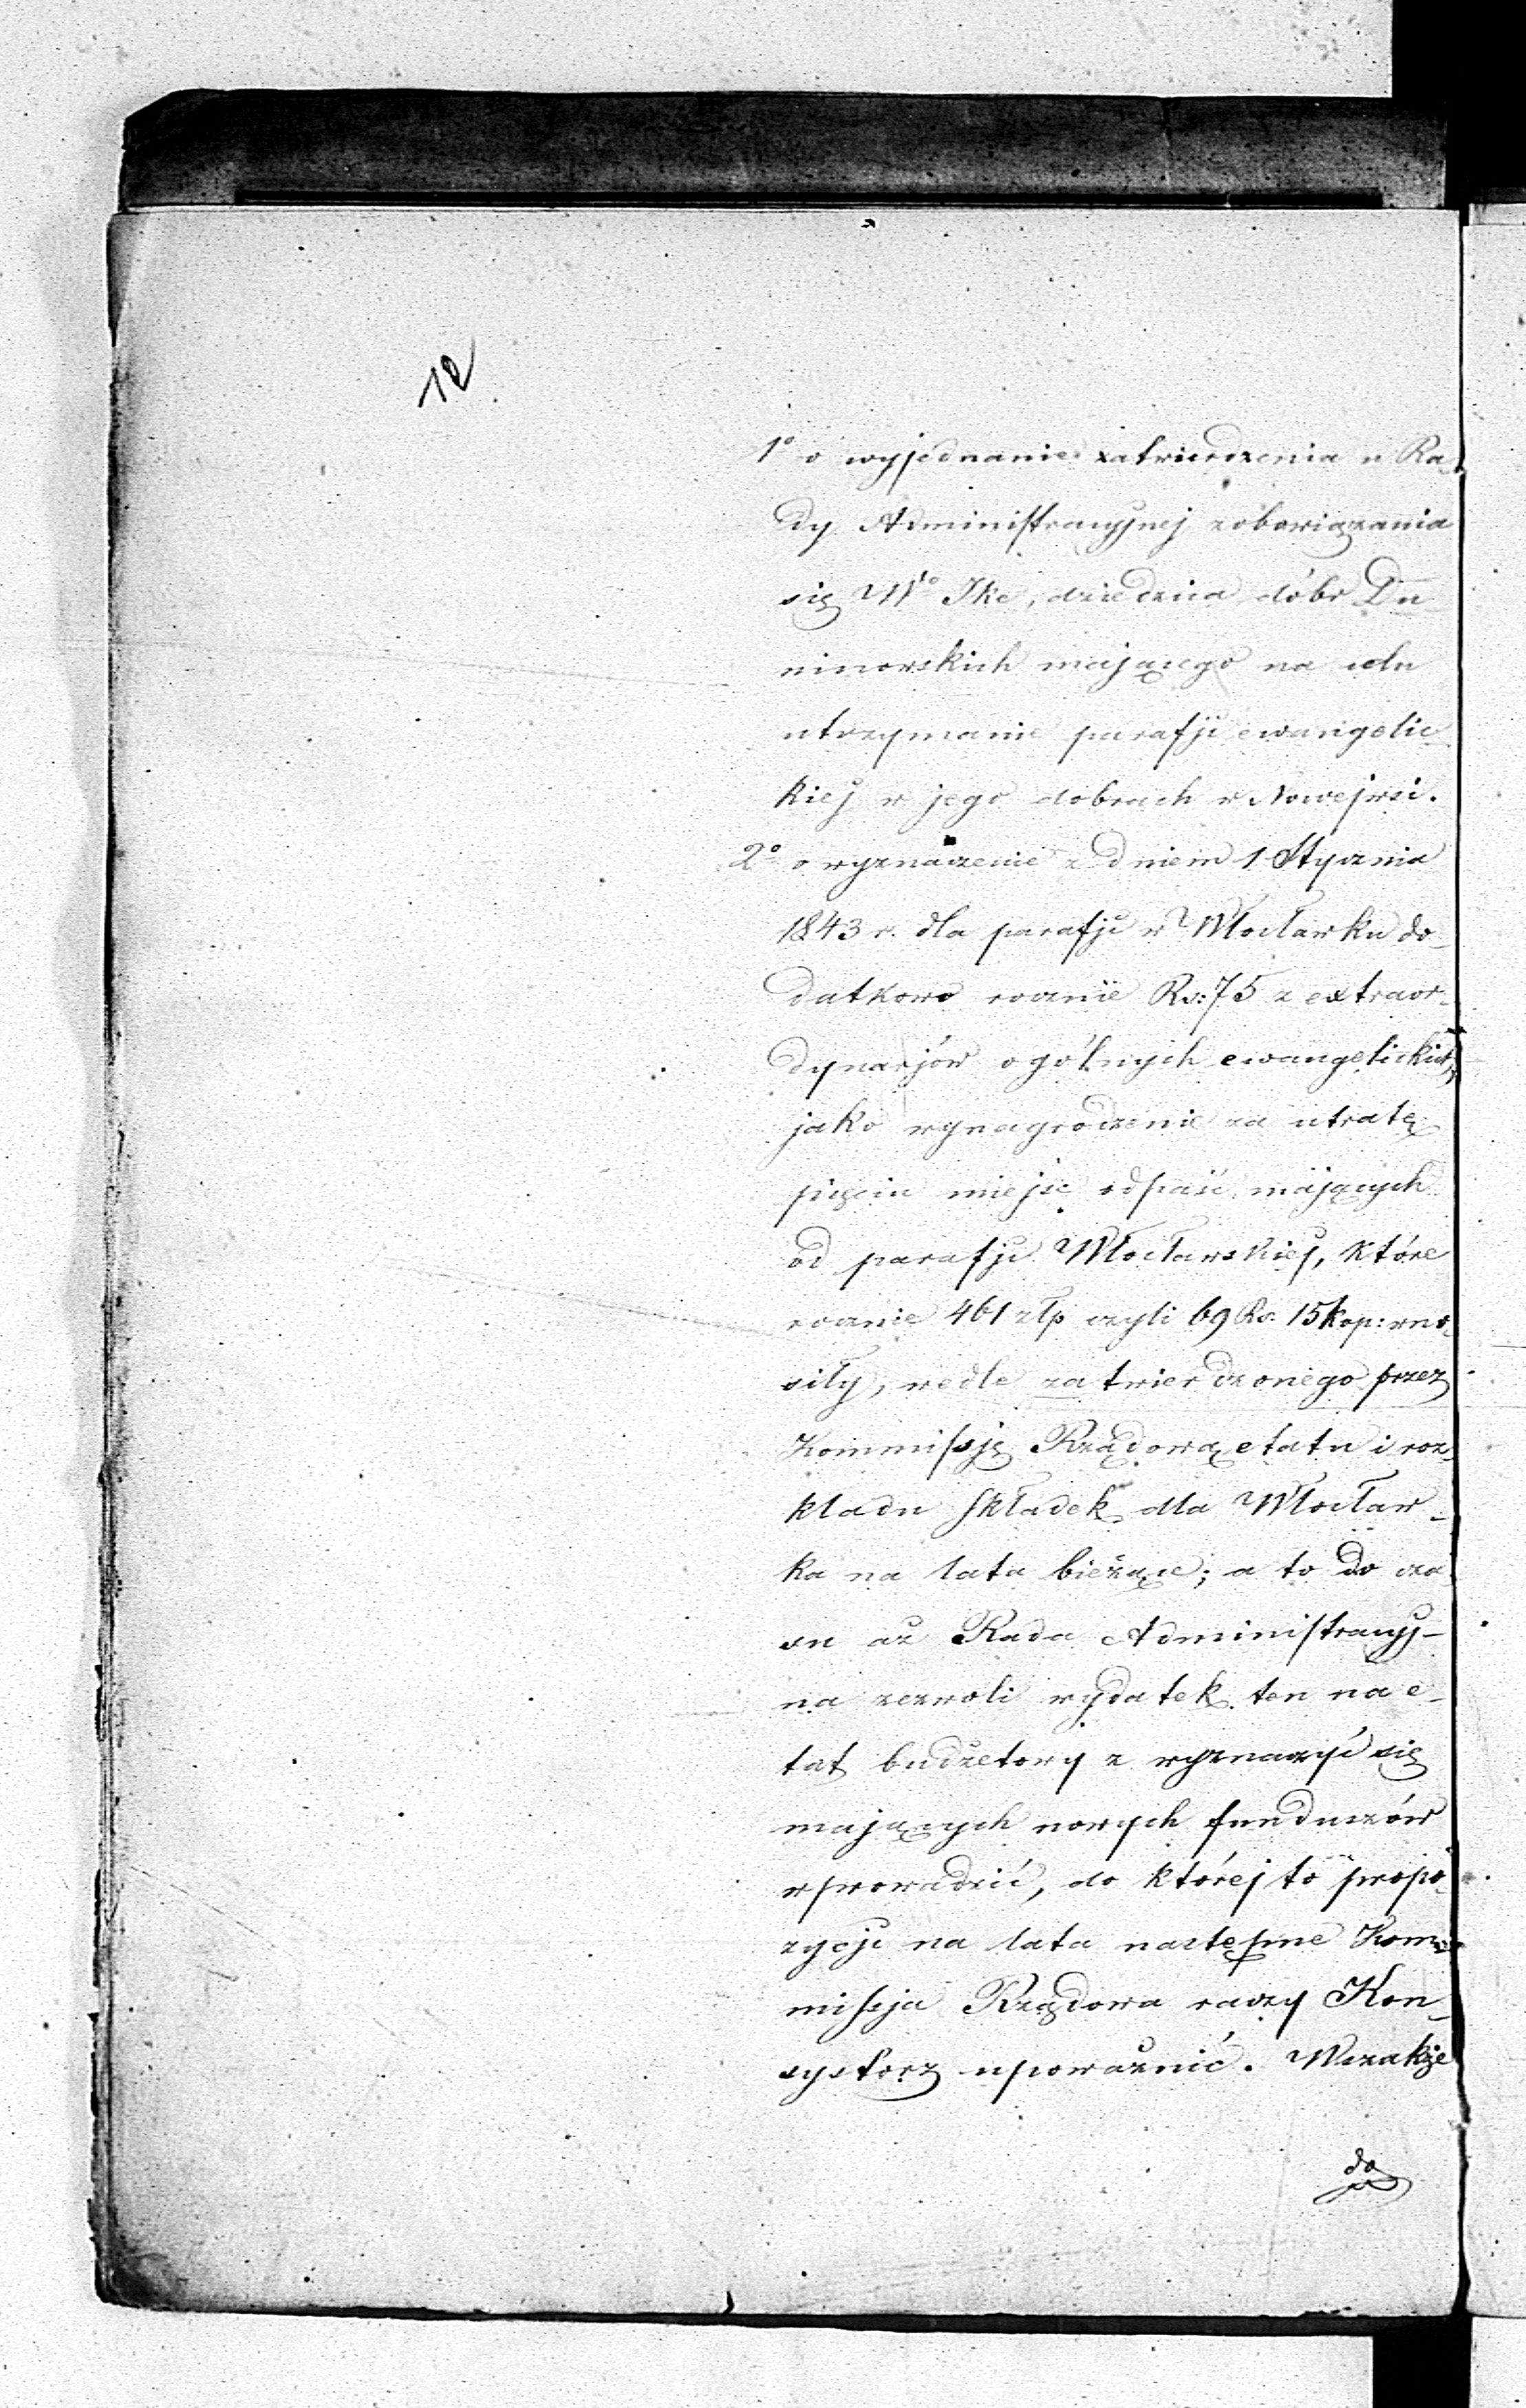 12
1° o wyjednanie zatwierdzenia u Ra-
dy Administracyjnej zobowiązania
się Wgo Ike, dziedzica dóbr Du-
ninowskich mającego na celu
utrzymanie parafji ewangelic-
kiej w jego dobrach w Nowejwsi.
2° o wyznaczenie z dniem 1 Stycznia
1843 r. dla parafji w Włocławku do-
datkowo rocznie Rs: 75 z extraor-
dynarjów ogólnych ewangelickich,
jako wynagrodzenie za utratę
pięciu miejsc odpaść mających
od parafji Włocławskiej, które
rocznie 461 złp czyli 69 Rs. 15 kop: wno-
siły, wedle zatwierdzonego przez
Kommissję Rządową etatu i roz-
kładu składek dla Włocław-
ka na lata bieżące; a to do cza-
su aż Rada Administracyj-
na zezwoli wydatek ten na e-
tat budżetowy z wyznaczyć się
mających nowych funduszów
wprowadzić, do której to propo-
zycji na lata następne Kom-
missja Rządowa raczy Kon-
systorz upoważnić. Wszakże
do